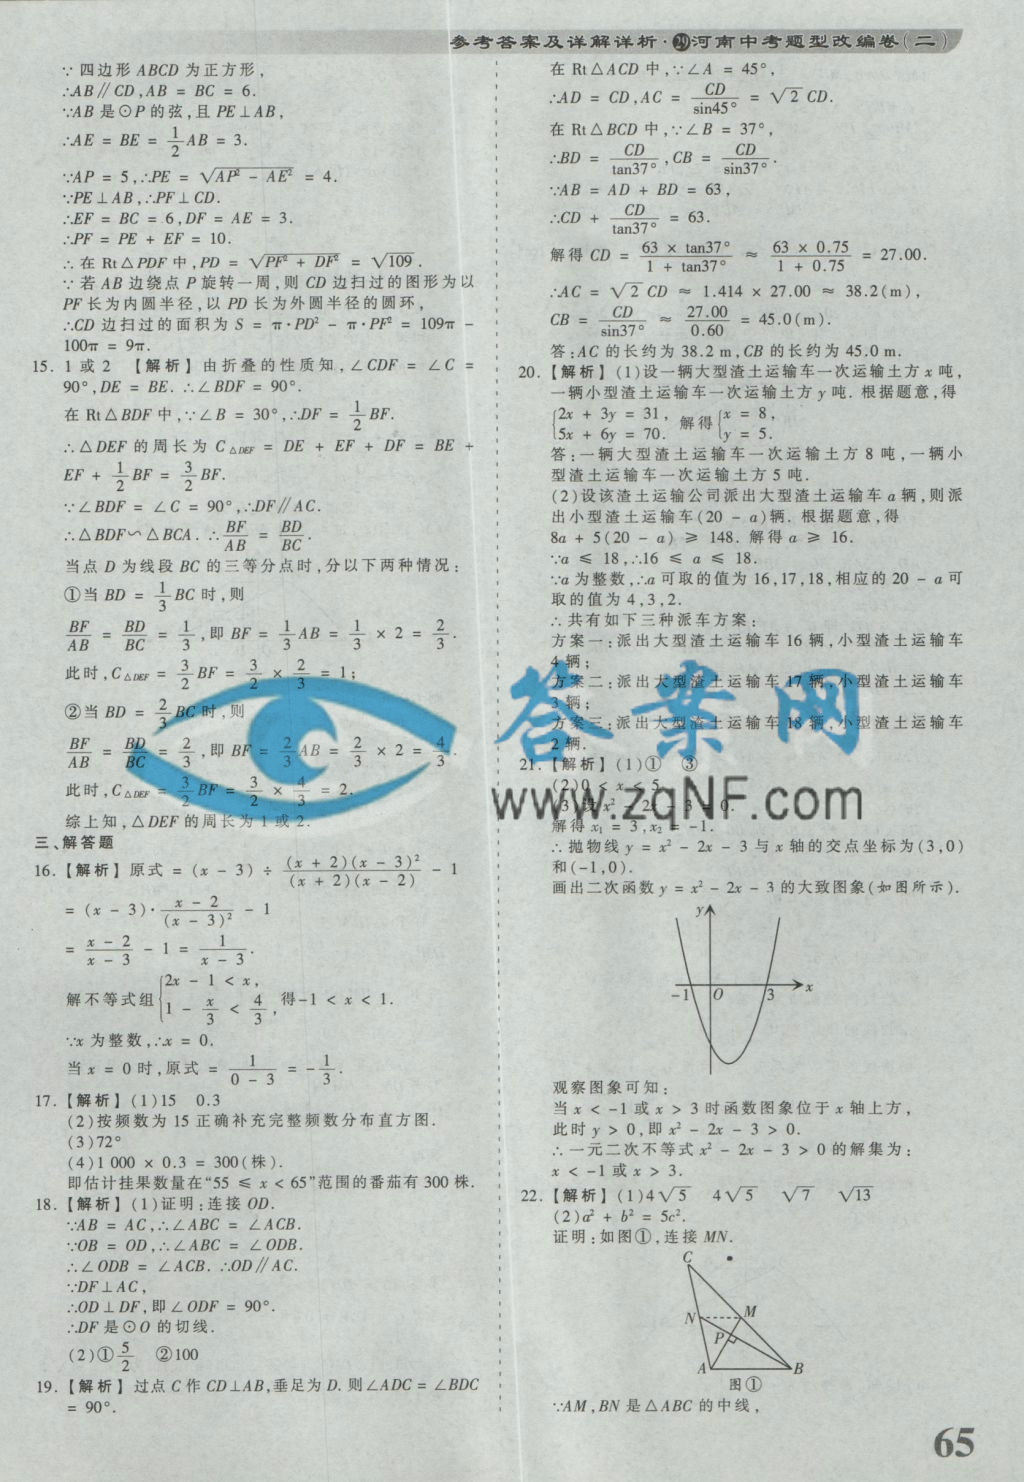 参考答案及详解详析·29河南中考题型改编卷(二)
∵四边形ABCD为正方形,
∴AB∥CD,AB = BC = 6.
∵AB是⊙P的弦,且PE⊥AB,
∴AE = BE = 1/2 AB = 3.
∵AP = 5,∴PE = √(AP² - AE²) = 4.
∵PE⊥AB,∴PF⊥CD.
∴EF = BC = 6,DF = AE = 3.
∴PF = PE + EF = 10.
∴在Rt△PDF中,PD = √(PF² + DF²) = √109.
∵若AB边绕点P旋转一周,则CD边扫过的图形为以
PF长为内圆半径,以PD长为外圆半径的圆环,
∴CD边扫过的面积为S = π·PD² - π·PF² = 109π -
100π = 9π.
15. 1或2 【解析】由折叠的性质知,∠CDF = ∠C =
90°,DE = BE. ∴∠BDF = 90°.
在Rt△BDF中,∵∠B = 30°,∴DF = 1/2 BF.
∴△DEF的周长为C△DEF = DE + EF + DF = BE +
EF + 1/2 BF = 3/2 BF.
∵∠BDF = ∠C = 90°,∴DF∥AC.
∴△BDF∽△BCA. ∴BF/AB = BD/BC.
当点D为线段BC的三等分点时,分以下两种情况:
①当BD = 1/3 BC时,则
BF/AB = BD/BC = 1/3,即BF = 1/3 AB = 1/3 × 2 = 2/3.
此时,C△DEF = 3/2 BF = 3/2 × 2/3 = 1;
②当BD = 2/3 BC时,则
BF/AB = BD/BC = 2/3,即BF = 2/3 AB = 2/3 × 2 = 4/3.
此时,C△DEF = 3/2 BF = 3/2 × 4/3 = 2.
综上知,△DEF的周长为1或2.
三、解答题
16.【解析】原式 = (x - 3) ÷ (x + 2)(x - 3)²/(x + 2)(x - 2) - 1
= (x - 3)·(x - 2)/(x - 3)² - 1
= (x - 2)/(x - 3) - 1 = 1/(x - 3).
解不等式组{2x - 1 < x, 1 - x/3 < 4/3, 得-1 < x < 1.
∵x为整数,∴x = 0.
当x = 0时,原式 = 1/(0 - 3) = -1/3.
17.【解析】(1)15 0.3
(2)按频数为15正确补充完整频数分布直方图.
(3)72°
(4)1 000 × 0.3 = 300(株).
即估计挂果数量在“55 ≤ x < 65”范围的番茄有300株.
18.【解析】(1)证明:连接OD.
∵AB = AC,∴∠ABC = ∠ACB.
∵OB = OD,∴∠ABC = ∠ODB.
∴∠ODB = ∠ACB. ∴OD∥AC.
∵DF⊥AC,
∴OD⊥DF,即∠ODF = 90°.
∴DF是⊙O的切线.
(2)①5/2 ②100
19.【解析】过点C作CD⊥AB,垂足为D. 则∠ADC = ∠BDC
= 90°.
在Rt△ACD中,∵∠A = 45°,
∴AD = CD,AC = CD/sin45° = √2 CD.
在Rt△BCD中,∵∠B = 37°,
∴BD = CD/tan37°,CB = CD/sin37°.
∵AB = AD + BD = 63,
∴CD + CD/tan37° = 63.
解得CD = 63 × tan37°/1 + tan37° ≈ 63 × 0.75/1 + 0.75 = 27.00.
∴AC = √2 CD ≈ 1.414 × 27.00 ≈ 38.2(m),
CB = CD/sin37° ≈ 27.00/0.60 = 45.0(m).
答:AC的长约为38.2 m,CB的长约为45.0 m.
20.【解析】(1)设一辆大型渣土运输车一次运输土方x吨,
一辆小型渣土运输车一次运输土方y吨. 根据题意,得
{2x + 3y = 31, 5x + 6y = 70. 解得{x = 8, y = 5.
答:一辆大型渣土运输车一次运输土方8吨,一辆小
型渣土运输车一次运输土方5吨.
(2)设该渣土运输公司派出大型渣土运输车a辆,则派
出小型渣土运输车(20 - a)辆. 根据题意,得
8a + 5(20 - a) ≥ 148. 解得a ≥ 16.
∵a ≤ 18,∴16 ≤ a ≤ 18.
∵a为整数,∴a可取的值为16,17,18,相应的20 - a可
取的值为4,3,2.
∴共有如下三种派车方案:
方案一:派出大型渣土运输车16辆,小型渣土运输车
4辆;
方案二:派出大型渣土运输车17辆,小型渣土运输车
3辆;
方案三:派出大型渣土运输车18辆,小型渣土运输车
2辆.
21.【解析】(1)① ③
(2)0 < x < 5
(3)设x² - 2x - 3 = 0.
解得x₁ = 3,x₂ = -1.
∴抛物线y = x² - 2x - 3与x轴的交点坐标为(3,0)
和(-1,0).
画出二次函数y = x² - 2x - 3的大致图象(如图所示).
y
-1 O 3 x
观察图象可知:
当x < -1或x > 3时函数图象位于x轴上方,
此时y > 0,即x² - 2x - 3 > 0.
∴一元二次不等式x² - 2x - 3 > 0的解集为:
x < -1或x > 3.
22.【解析】(1)4√5 4√5 √7 √13
(2)a² + b² = 5c².
证明:如图①,连接MN.
C
N M
P
A B
图①
∵AM,BN是△ABC的中线,
65
答案网
www.zqNF.com